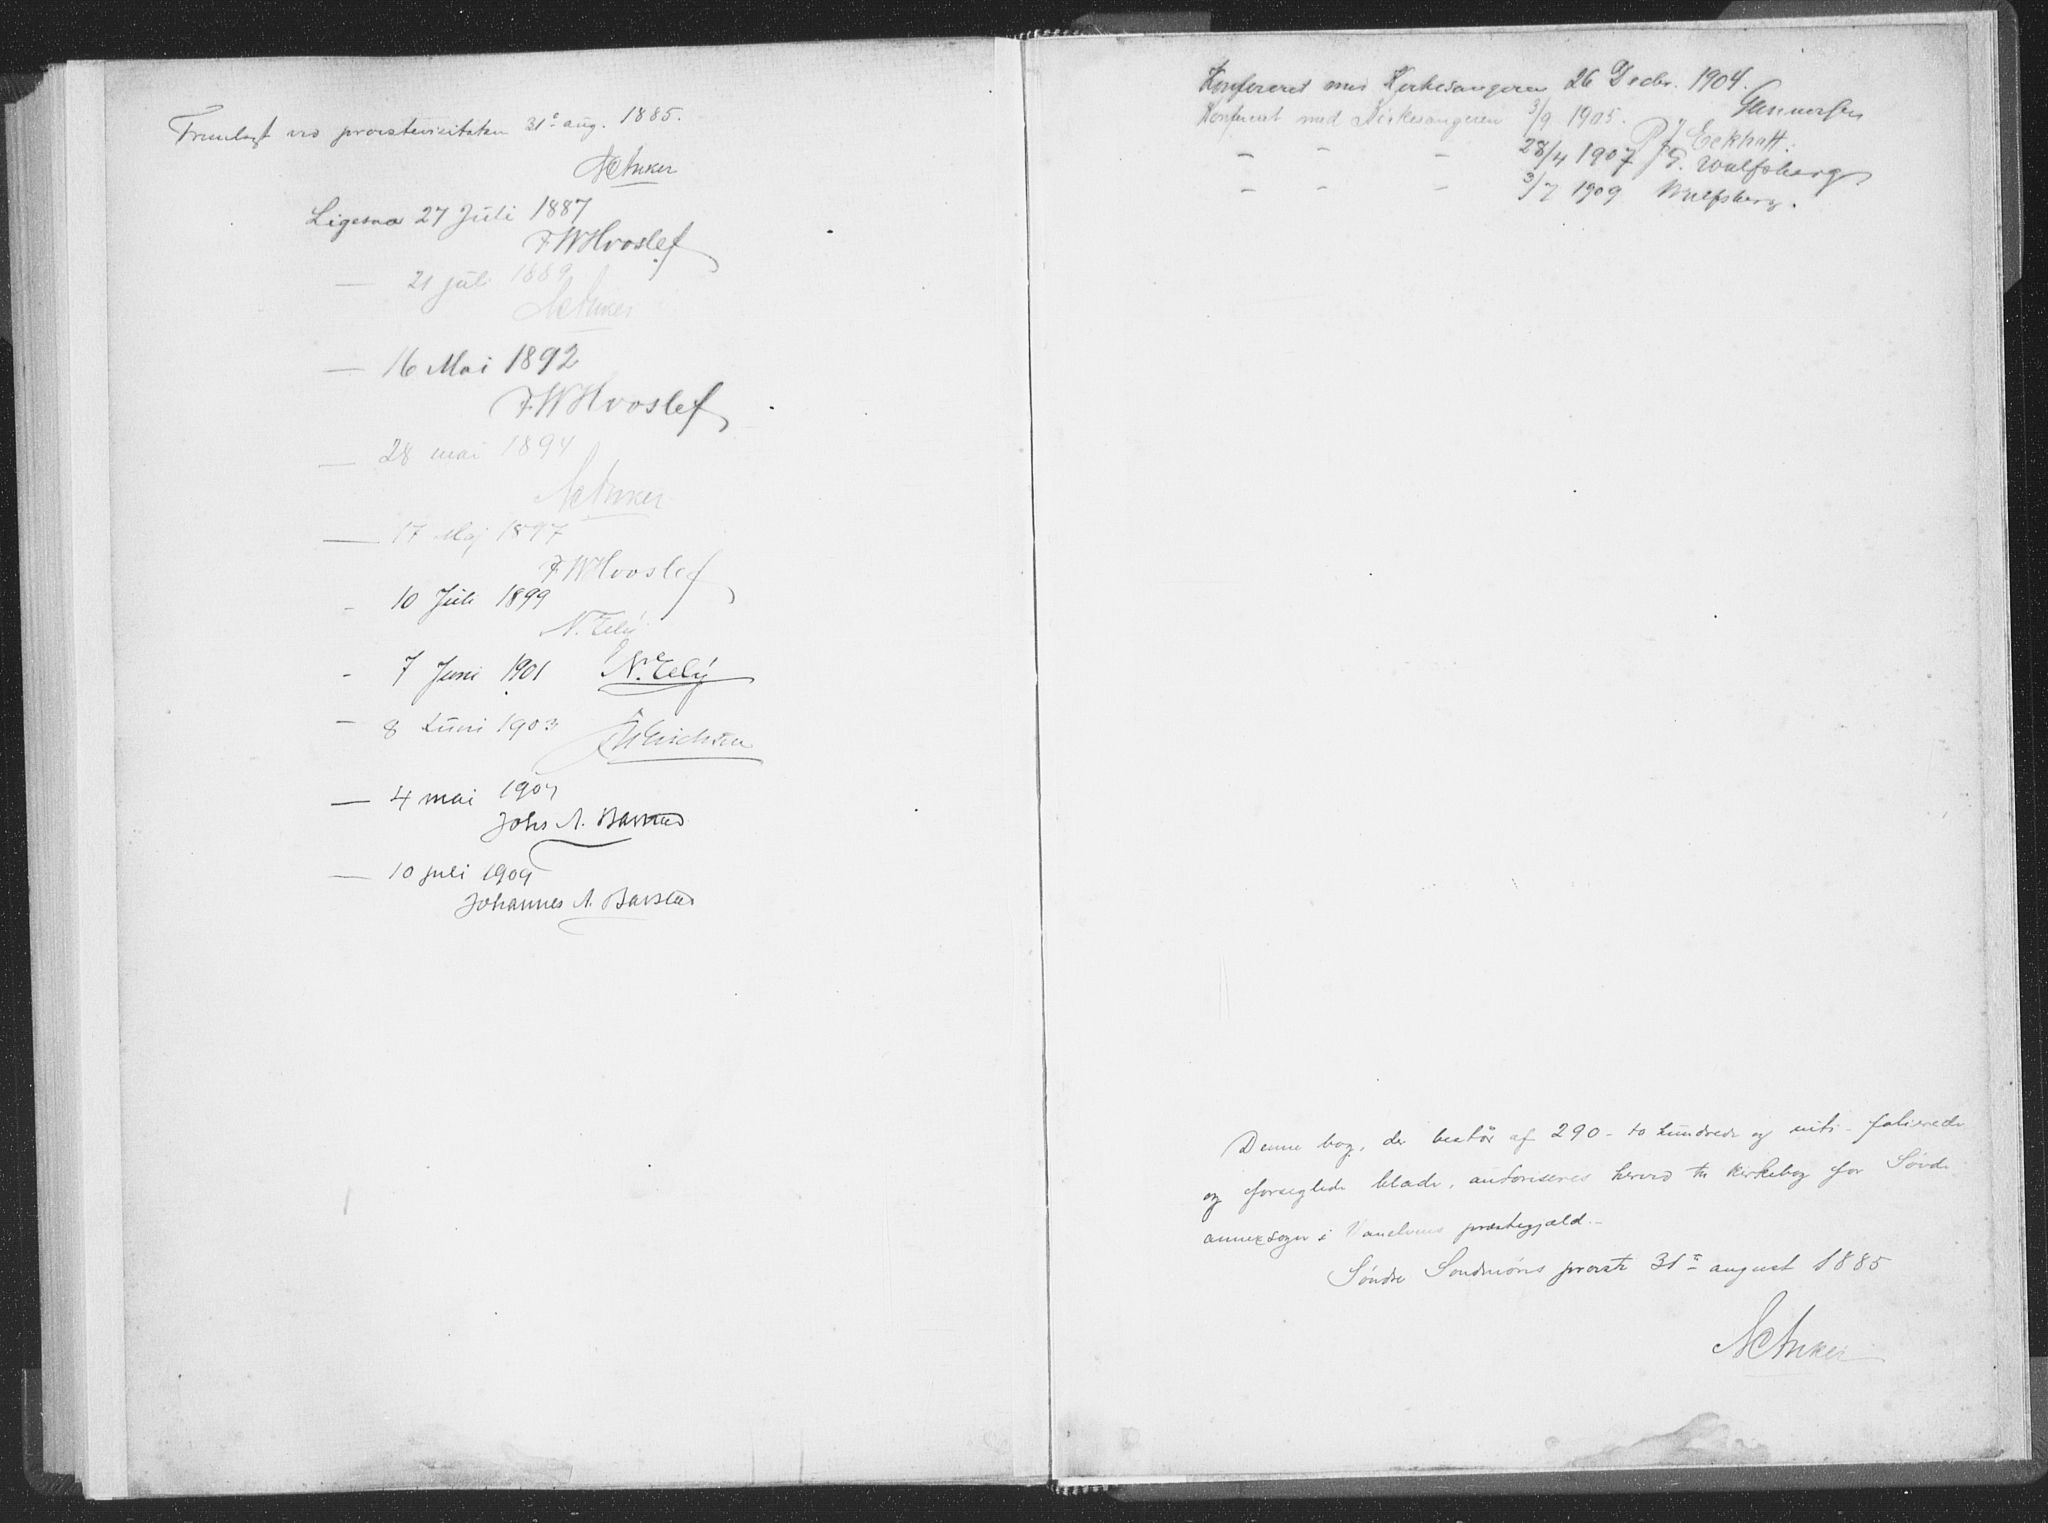 Fremlagt ved provstevisitaten 31te aug. 1885.
NCAnker
Ligesaa 27 Juli 1887
F.W.Hvoslef
— 21 juli 1889
NCAnker
— 16 Mai 1892
F.W.Hvoslef
— 28 mai 1894
NCAnker
— 17 Maj 1897
F.W.Hvoslef
- 10 Juli 1899
- 7 Juni 1901
- 8 Juni 1903 Erichsen
— 4 mai 1907
Johs A. Barstad
— 10 juli 1909
Johannes A. Barstad
Konfereret med Kirkesangeren 26 Decbr. 1904.
Konfereret med Kirkesangeren 3/9 1905.
Eckhoff.
" " " 28/4 1907 G. Wulfsberg
" " " 3/7 1909 Wulfsberg.
Denne bog, der består af 290 - to hundrede og nitti - folierede
og forseglede blade, autoriseres herved til kirkebog for Søvde
annexsogn i Vanelvens præstegjæld.-
Søndre Søndmøres provsti 31te august 1885
NCAnker